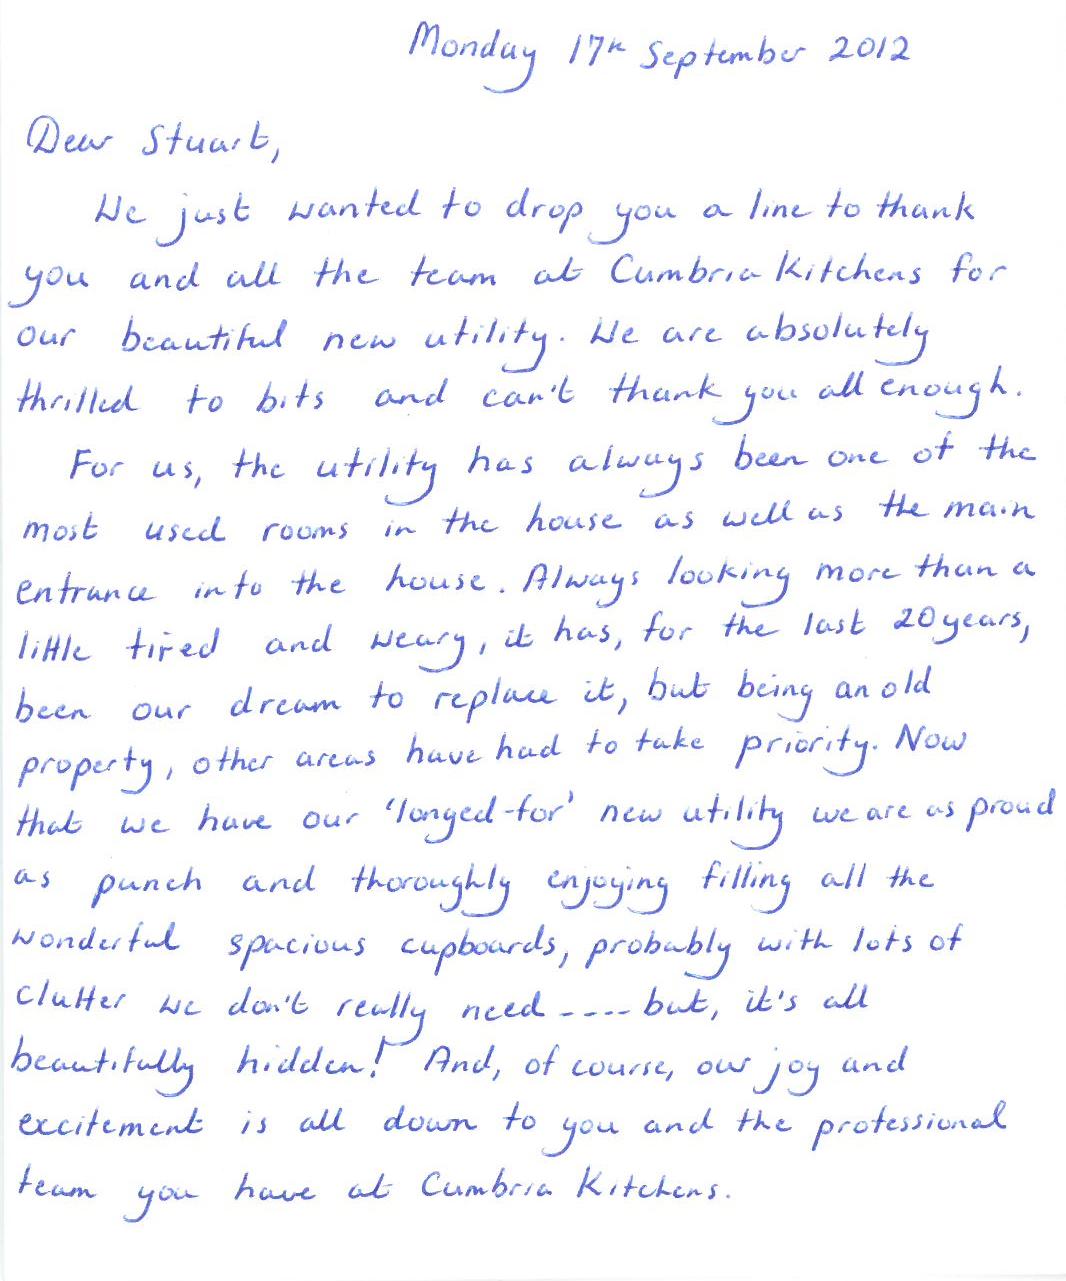 Monday 17th September 2012
Dear Stuart,
We just wanted to drop you a line to thank
you and all the team at Cumbria Kitchens for
our beautiful new utility. We are absolutely
thrilled to bits and can't thank you all enough.
For us, the utility has always been one of the
most used rooms in the house as well as the main
entrance into the house. Always looking more than a
little tired and weary, it has, for the last 20 years,
been our dream to replace it, but being an old
property, other areas have had to take priority. Now
that we have our 'longed-for' new utility we are as proud
as punch and thoroughly enjoying filling all the
wonderful spacious cupboards, probably with lots of
clutter we don't really need ---- but, it's all
beautifully hidden! And, of course, our joy and
excitement is all down to you and the professional
team you have at Cumbria Kitchens.